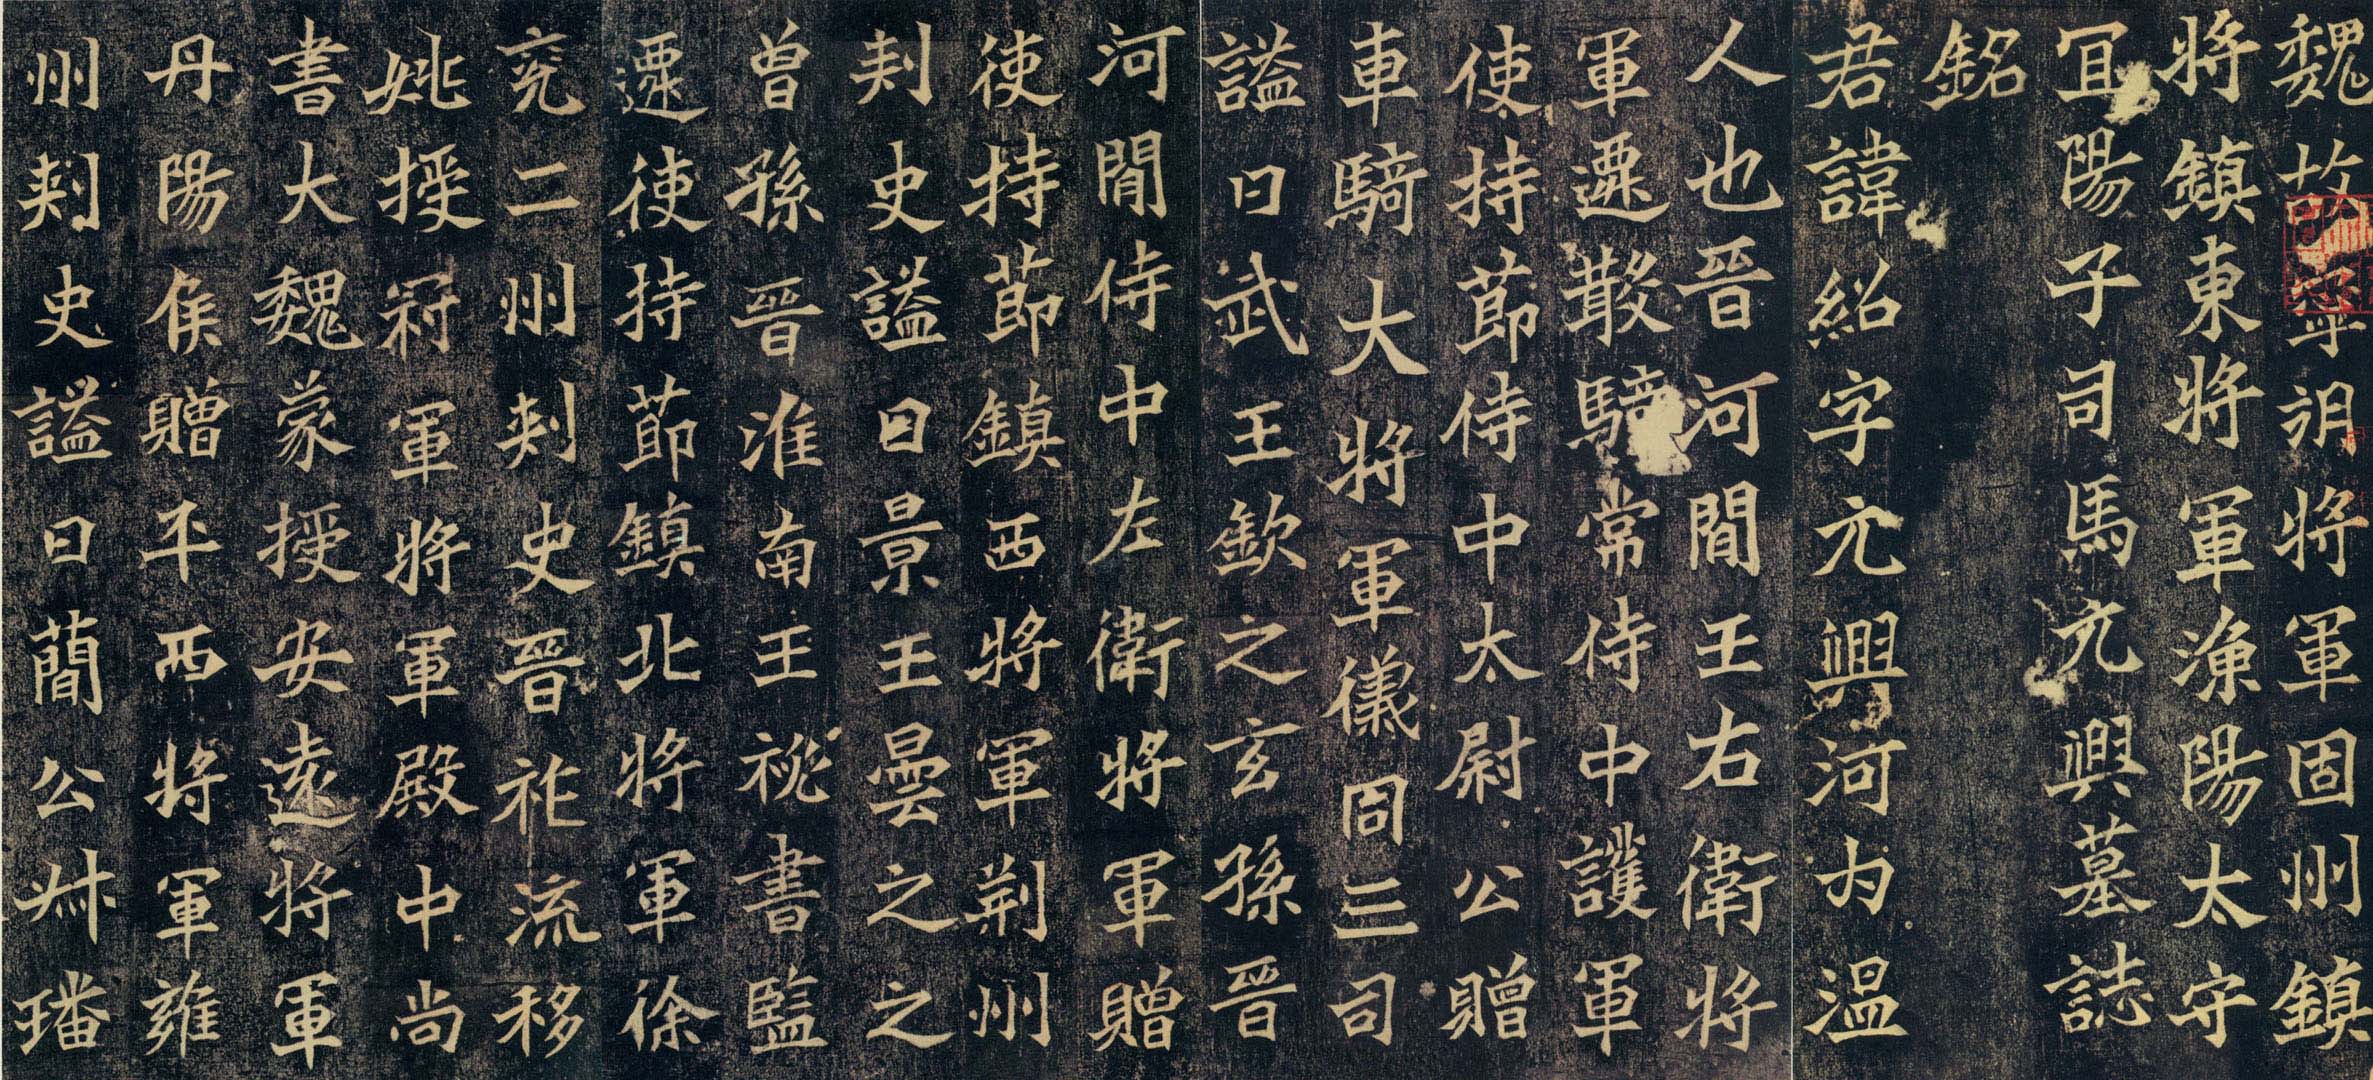 魏故寧朔將軍固州鎮
將鎮東將軍漁陽太守
宜陽子司馬元興墓誌
銘
君諱紹字元興河内温
人也晉河間王右衛將
軍遷散騎常侍中護軍
使持節侍中太尉公贈
車騎大將軍儀同三司
謚曰武王欽之玄孫晉
河間侍中左衛將軍贈
使持節鎮西將軍荊州
刺史謚曰景王曇之之
曾孫晉淮南王祕書監
遷使持節鎮北將軍徐
兖二州刺史晉祚流移
姚授冠軍將軍殿中尚
書大魏蒙授安遠將軍
丹陽侯贈平西將軍雍
州刺史謚曰簡公叔璠